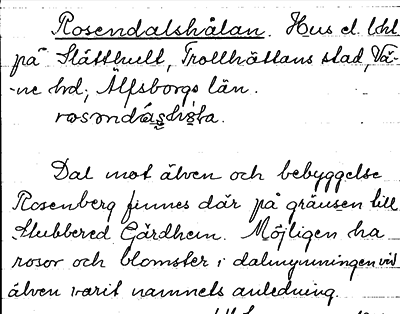 Rosendalshålan. Hus el. lht
på Slätthult, Trollhättans stad, Vä-
-ne hd; Älfsborgs län.
rosəndás̱hó̱la.
Dal mot älven och bebyggelse
Rosenberg finnes där på gränsen till
Stubbered Gärdhem. Möjligen ha
rosor och blomster i dalmynningen vid
älven varit namnets anledning.